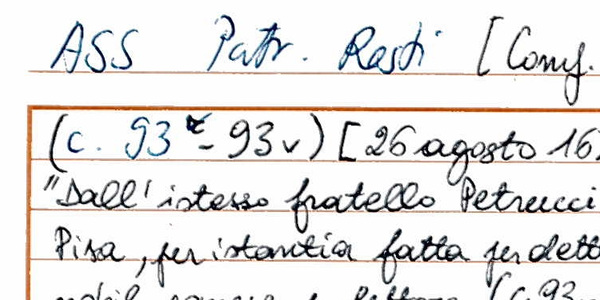 ASS Patr. Resti [Comf.
(c. 93r-93v) [26 agosto 16
"Dall'istesso fratello Petrucci
Pisa, per istantia fatta per dett
(c. 93